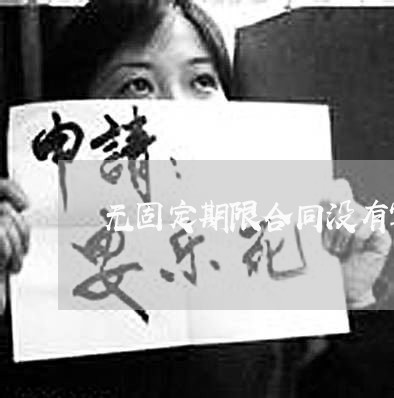 申請：
无固定期限合同没有
安乐死